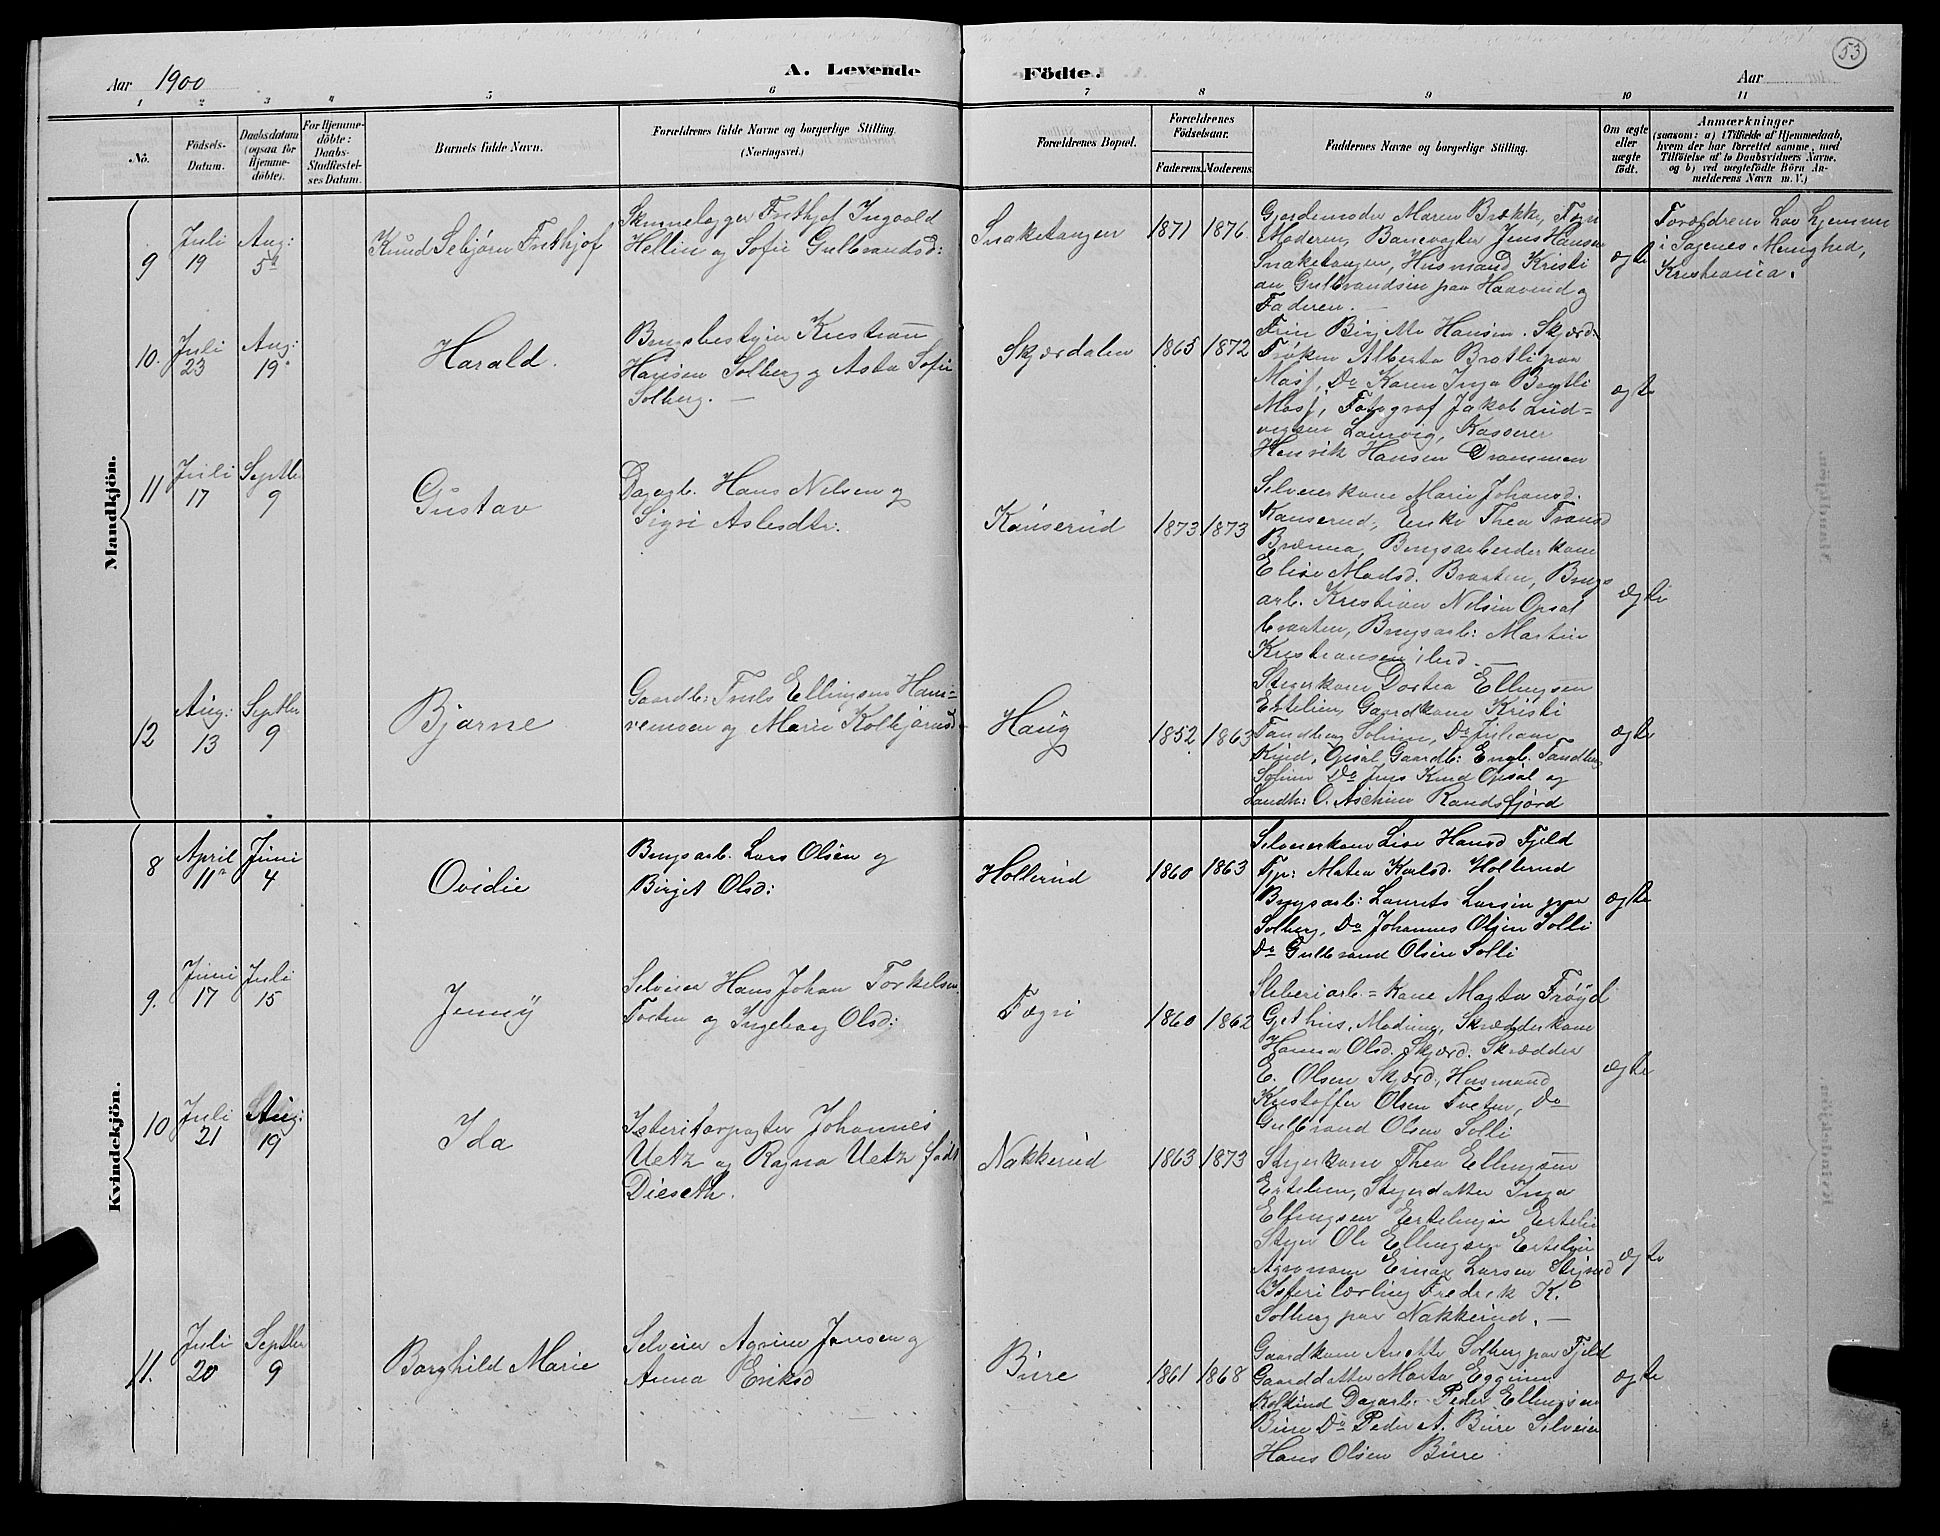 53
Aar 1900
A. Levende Födte.
Aar
1 2 3 4 5 6 7 8 9 10 11
Nô.
Födsels-
Datum.
Daabsdatum
(ogsaa for
Hjemme-
döbte).
For Hjemme-
döbte:
Daabs-
Stadfæstel-
ses Datum.
Barnets fulde Navn.
Forældrenes fulde Navne og borgerlige Stilling.
(Næringsvei.)
Forældrenes Bopæl.
Forældrenes
Födselsaar.
Faderens. Moderens.
Faddernes Navne og borgerlige Stilling.
Om ægte
eller
uægte
födt.
Anmærkninger
(saasom: a) i Tilfælde af Hjemmedaab,
hvem der har forrettet samme, med
Tilföielse af to Daabsvidners Navne,
og b) ved uægtefödte Börn An-
melderens Navn m. V.)
Mandkjön.
9
Juli
19
Aug:
5te
Knud Sebjørn Frithjof
Skinnelægger Frithjof Ingvald
Hellin og Sofie Gulbrandsd:
Snaketangen
1871 1876
Gjordemoder Maren Brække,
Moderen, Banevogter Jens Hansen
Snaketangen, Husmand Kristi
an Gulbrandsen paa Haavind og
Faderen.
ægte
Forældrene har hjemme
i Sagenes Menighed,
Kristiania.
10.
Juli
23
Aug:
19
Harald.
Brugsbestyrer Kristian
Hansen Solberg og Asta Sofie
Solberg.
Skjærdalen
1865 1872
Hansen. Skjærd.
Frøken Alberta Brotli paa
Do Karen Inga
Fotograf Jakob Lud=
vigsen Laurvig, Kasserer
Henrik Hansen Drammen
ægte
11
Juli
17
Septbr
9
Gustav
Dagarb. Hans Nilsen og
Sigri Aslesdtr:
Kanserud
1873 1873
Selveierkone Marie Johansd.
Kanserud, Enke Thea
Brænna, Brugsarbeiderkone
Elise Madsd. Braaten, Brugs
arb. Kristian Nilsen Opsal
braaten, Brugsarb: Martin
Kristiansen ibid.
ægte
12
Aug:
13
Septbr
9
Bjarne
Gaardb: Truls Ellingsen Han=
vemoen og Marie Kolbjørnsd
Haug
1852 1863
Stigerkone Dortea Ellingsen
Ertelien, Gaardkone Kristi
Tandberg Solum, Do Juliane
Knud, Opsal, Gaardb: Engb. Tandberg
Solum Do Jens Knud Opsal og
Landh: O. Aschim Randsfjord
ægte
Kvindekjön.
8
April
11te
Juni
4
Ovidie
Brugsarb. Lars Olsen og
Birgit Olsd:
Hollerud
1860 1863
Selveierkone Lise Hansd Fjeld
Matea Karlsd. Hollerud
Brugsarb: Laurits Larsen paa
Solberg, Do Johannes Olsen Solli
Do Gulbrand Olsen Solli
ægte
9.
Juni
17
Juli
15
Jenny
Selveier Hans Johan Torkelsen
Tveten og Ingeborg Olsd:
Fægri
1860 1862
Sliberiarb.=Kone Marta Frøyd
Gjethus, Modum, Skrædderkone
Hanna Olsd. Skjærd. Skrædder
E. Olsen Skjærd., Husmand
Kristoffer Olsen Tveten, Do
Gulbrand Olsen Solli
ægte
10
Juli
21
Aug:
19
Ida
Isteriforpagter Johannes
Uetz og Ragna Uetz født
Dieseth.
Nakkerud
1863 1873
Stigerkone Thea Ellingsen
Ertelien, Stigerdatter Inga
Ellingsen Ertelien
Stiger Ole Ellingsen Ertelien
Agronom Einar Larsen
Isterilærling Fredrik K.
Solberg paa Nakkerud.
ægte
11.
Juli
20
Septbr
9
Borghild Marie
Selveier Jensen og
Anna Eriksd
Bure
1861 1868
Gaardkone Anette Solberg paa Fjeld
Gaarddatter Marta Eggum
Dagarb. Peder Ellingsen
Bure Do Peder A. Bure Selveier
Hans Olsen Bure
ægte